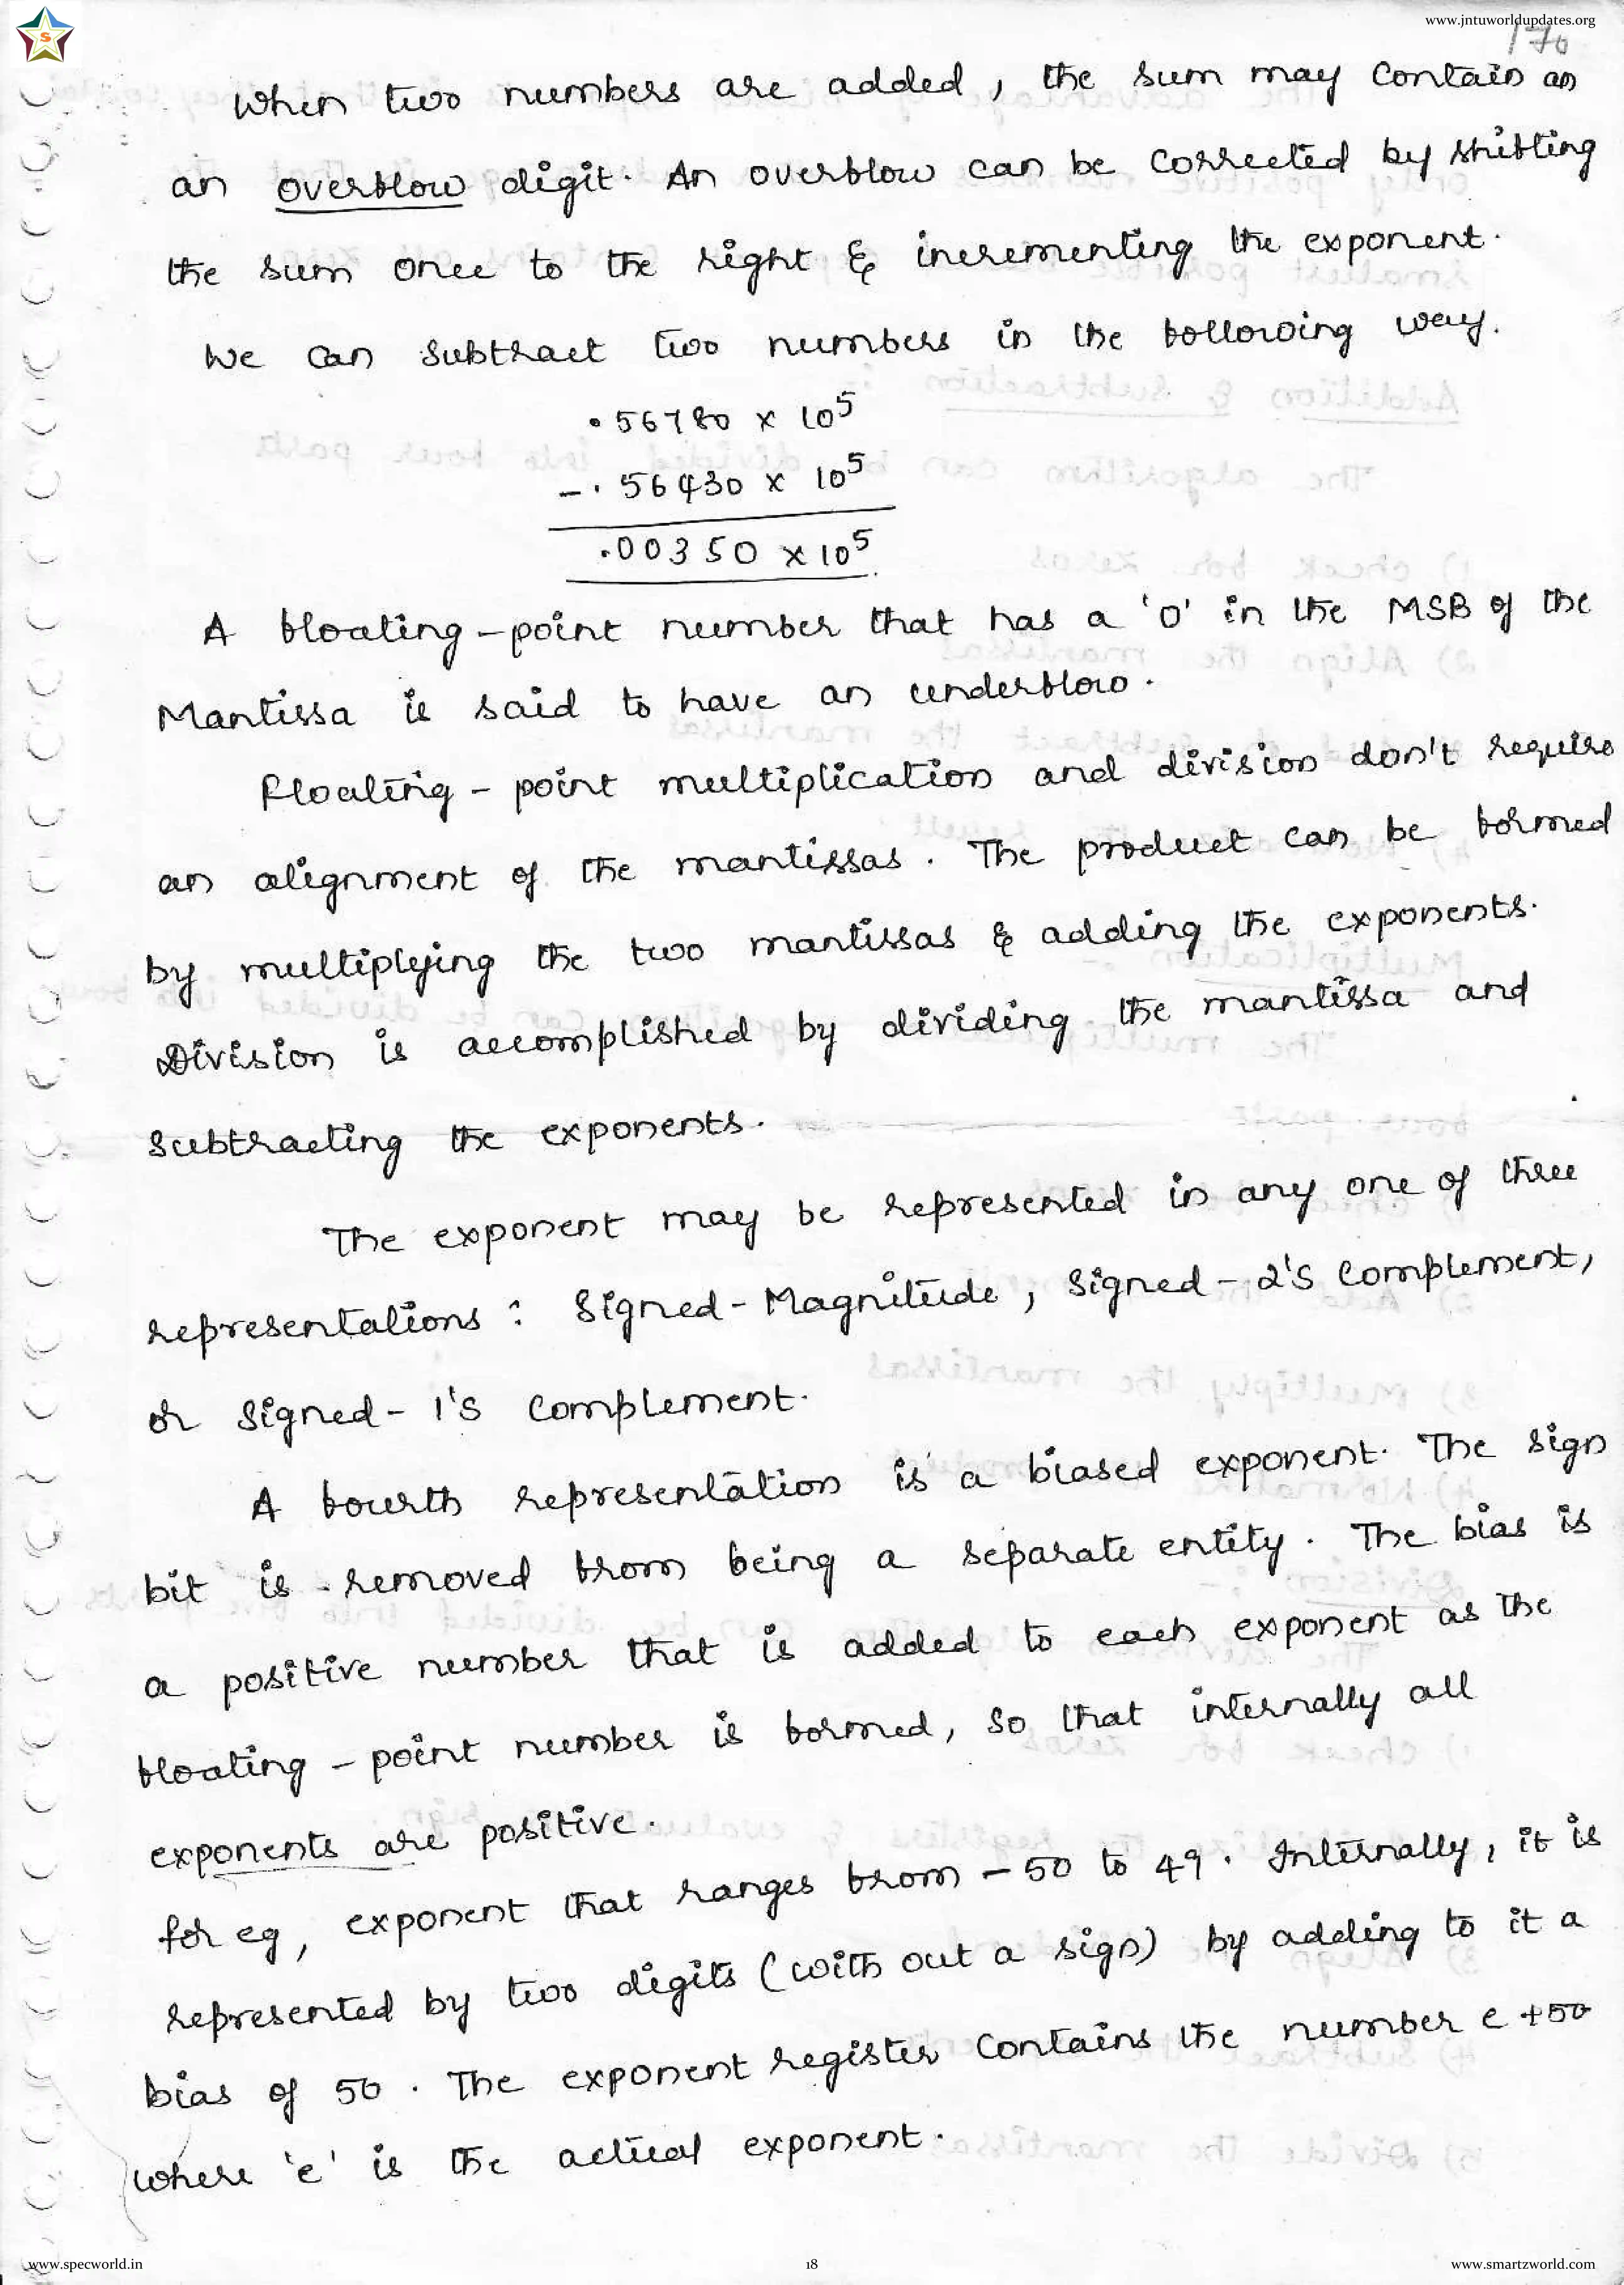 www.jntuworldupdates.org
170
When two numbers are added, the sum may contain an
an overflow digit. An overflow can be corrected by shifting
the sum once to the right & incrementing the exponent.
We can subtract two numbers in the following way.
.56780 x 10^5
-.56430 x 10^5
.00350 x 10^5
A floating-point number that has a '0' in the MSB of the
Mantissa is said to have an underflow.
Floating-point multiplication and division don't require
an alignment of the mantissas. The product can be formed
by multiplying the two mantissas & adding the exponents.
Division is accomplished by dividing the mantissa and
subtracting the exponents.
The exponent may be represented in any one of three
representations: Signed-Magnitude, Signed-2's Complement,
or Signed-1's complement.
A fourth representation is a biased exponent. The sign
bit is removed from being a separate entity. The bias is
a positive number that is added to each exponent as the
floating-point number is formed, so that internally all
exponents are positive.
for eg, exponent that ranges from -50 to 49. Internally, it is
represented by two digits (with out a sign) by adding to it a
bias of 50. The exponent register contains the number e+50
where 'e' is the actual exponent.
www.specworld.in
18
www.smartzworld.com